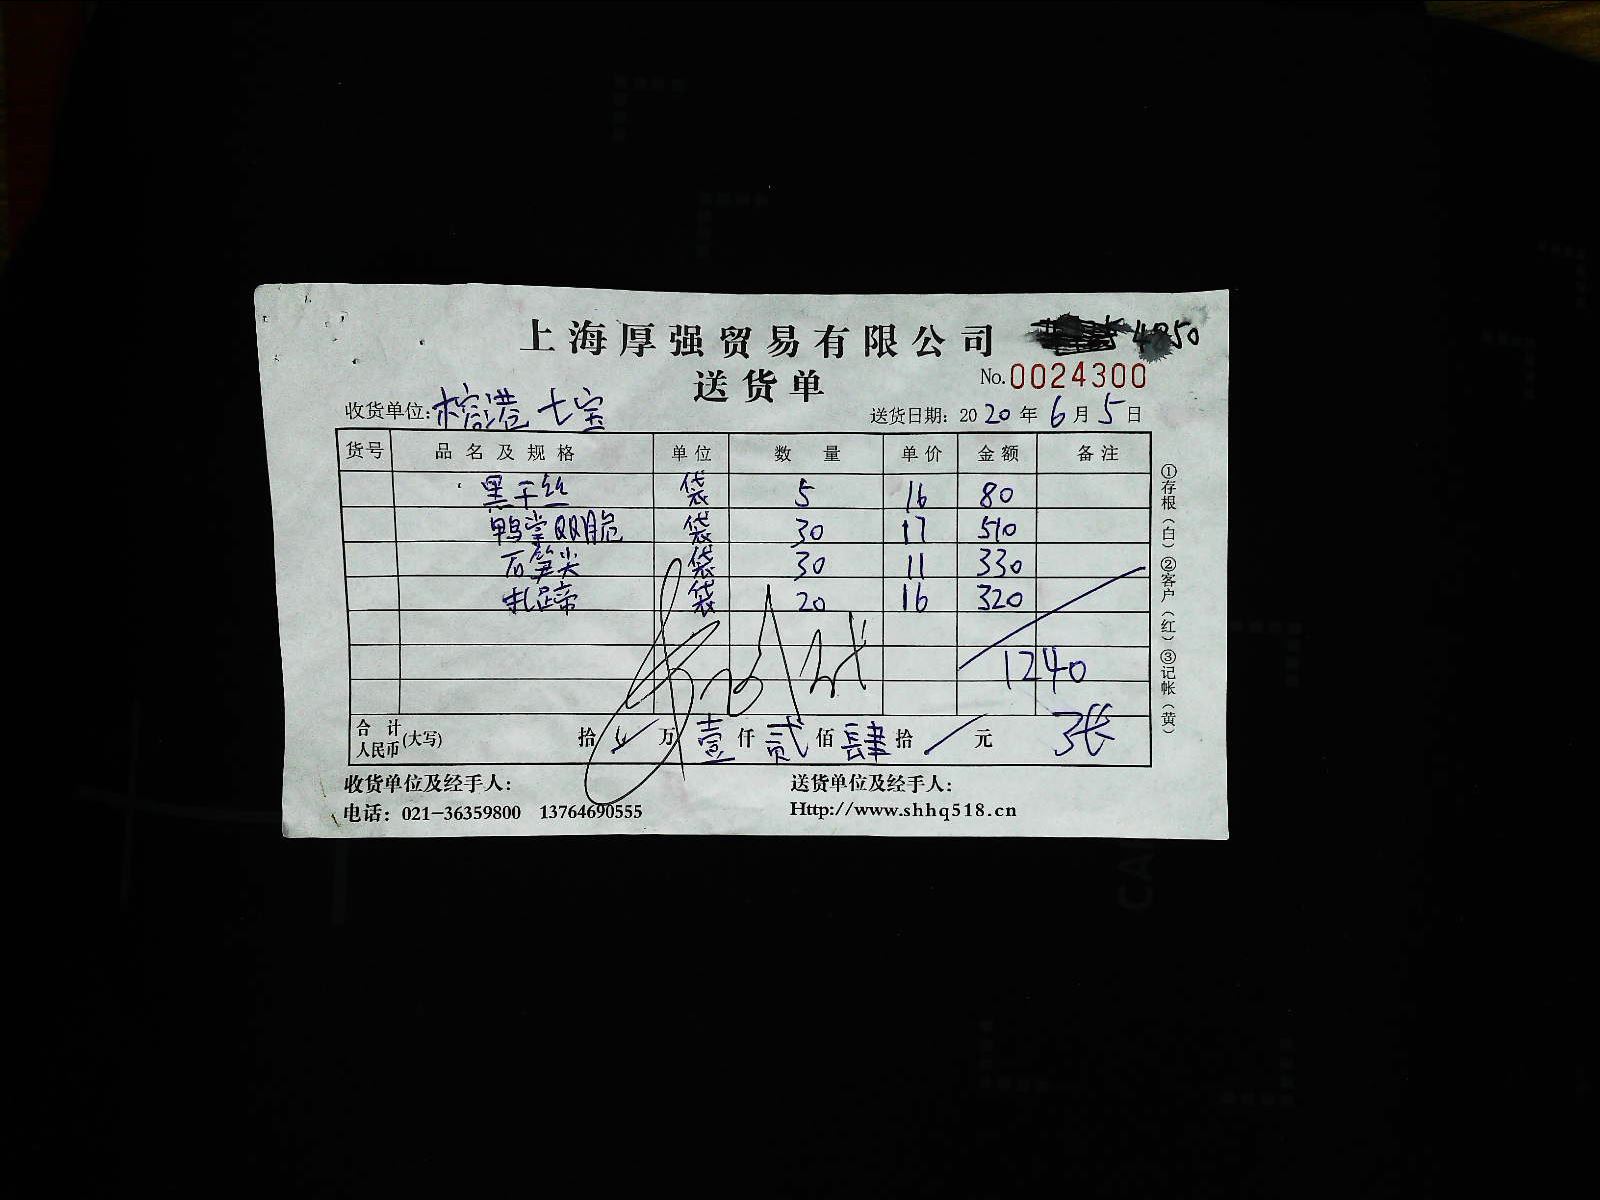 上海厚强贸易有限公司 4850
送货单 No.0024300
收货单位:榕港 七宝 送货日期: 2020年6月5日
货号 品名及规格 单位 数量 单价 金额 备注
黑干丝 袋 5 16 80
鸭掌双脆 袋 30 17 510
石笋尖 袋 30 11 330
扎蹄 袋 20 16 320
1240
合计人民币(大写) 拾 万 壹仟 贰佰 肆拾 元 3张
收货单位及经手人: 送货单位及经手人:
电话: 021-36359800 13764690555 Http://www.shhq518.cn
①存根(白)②客户(红)③记帐(黄)